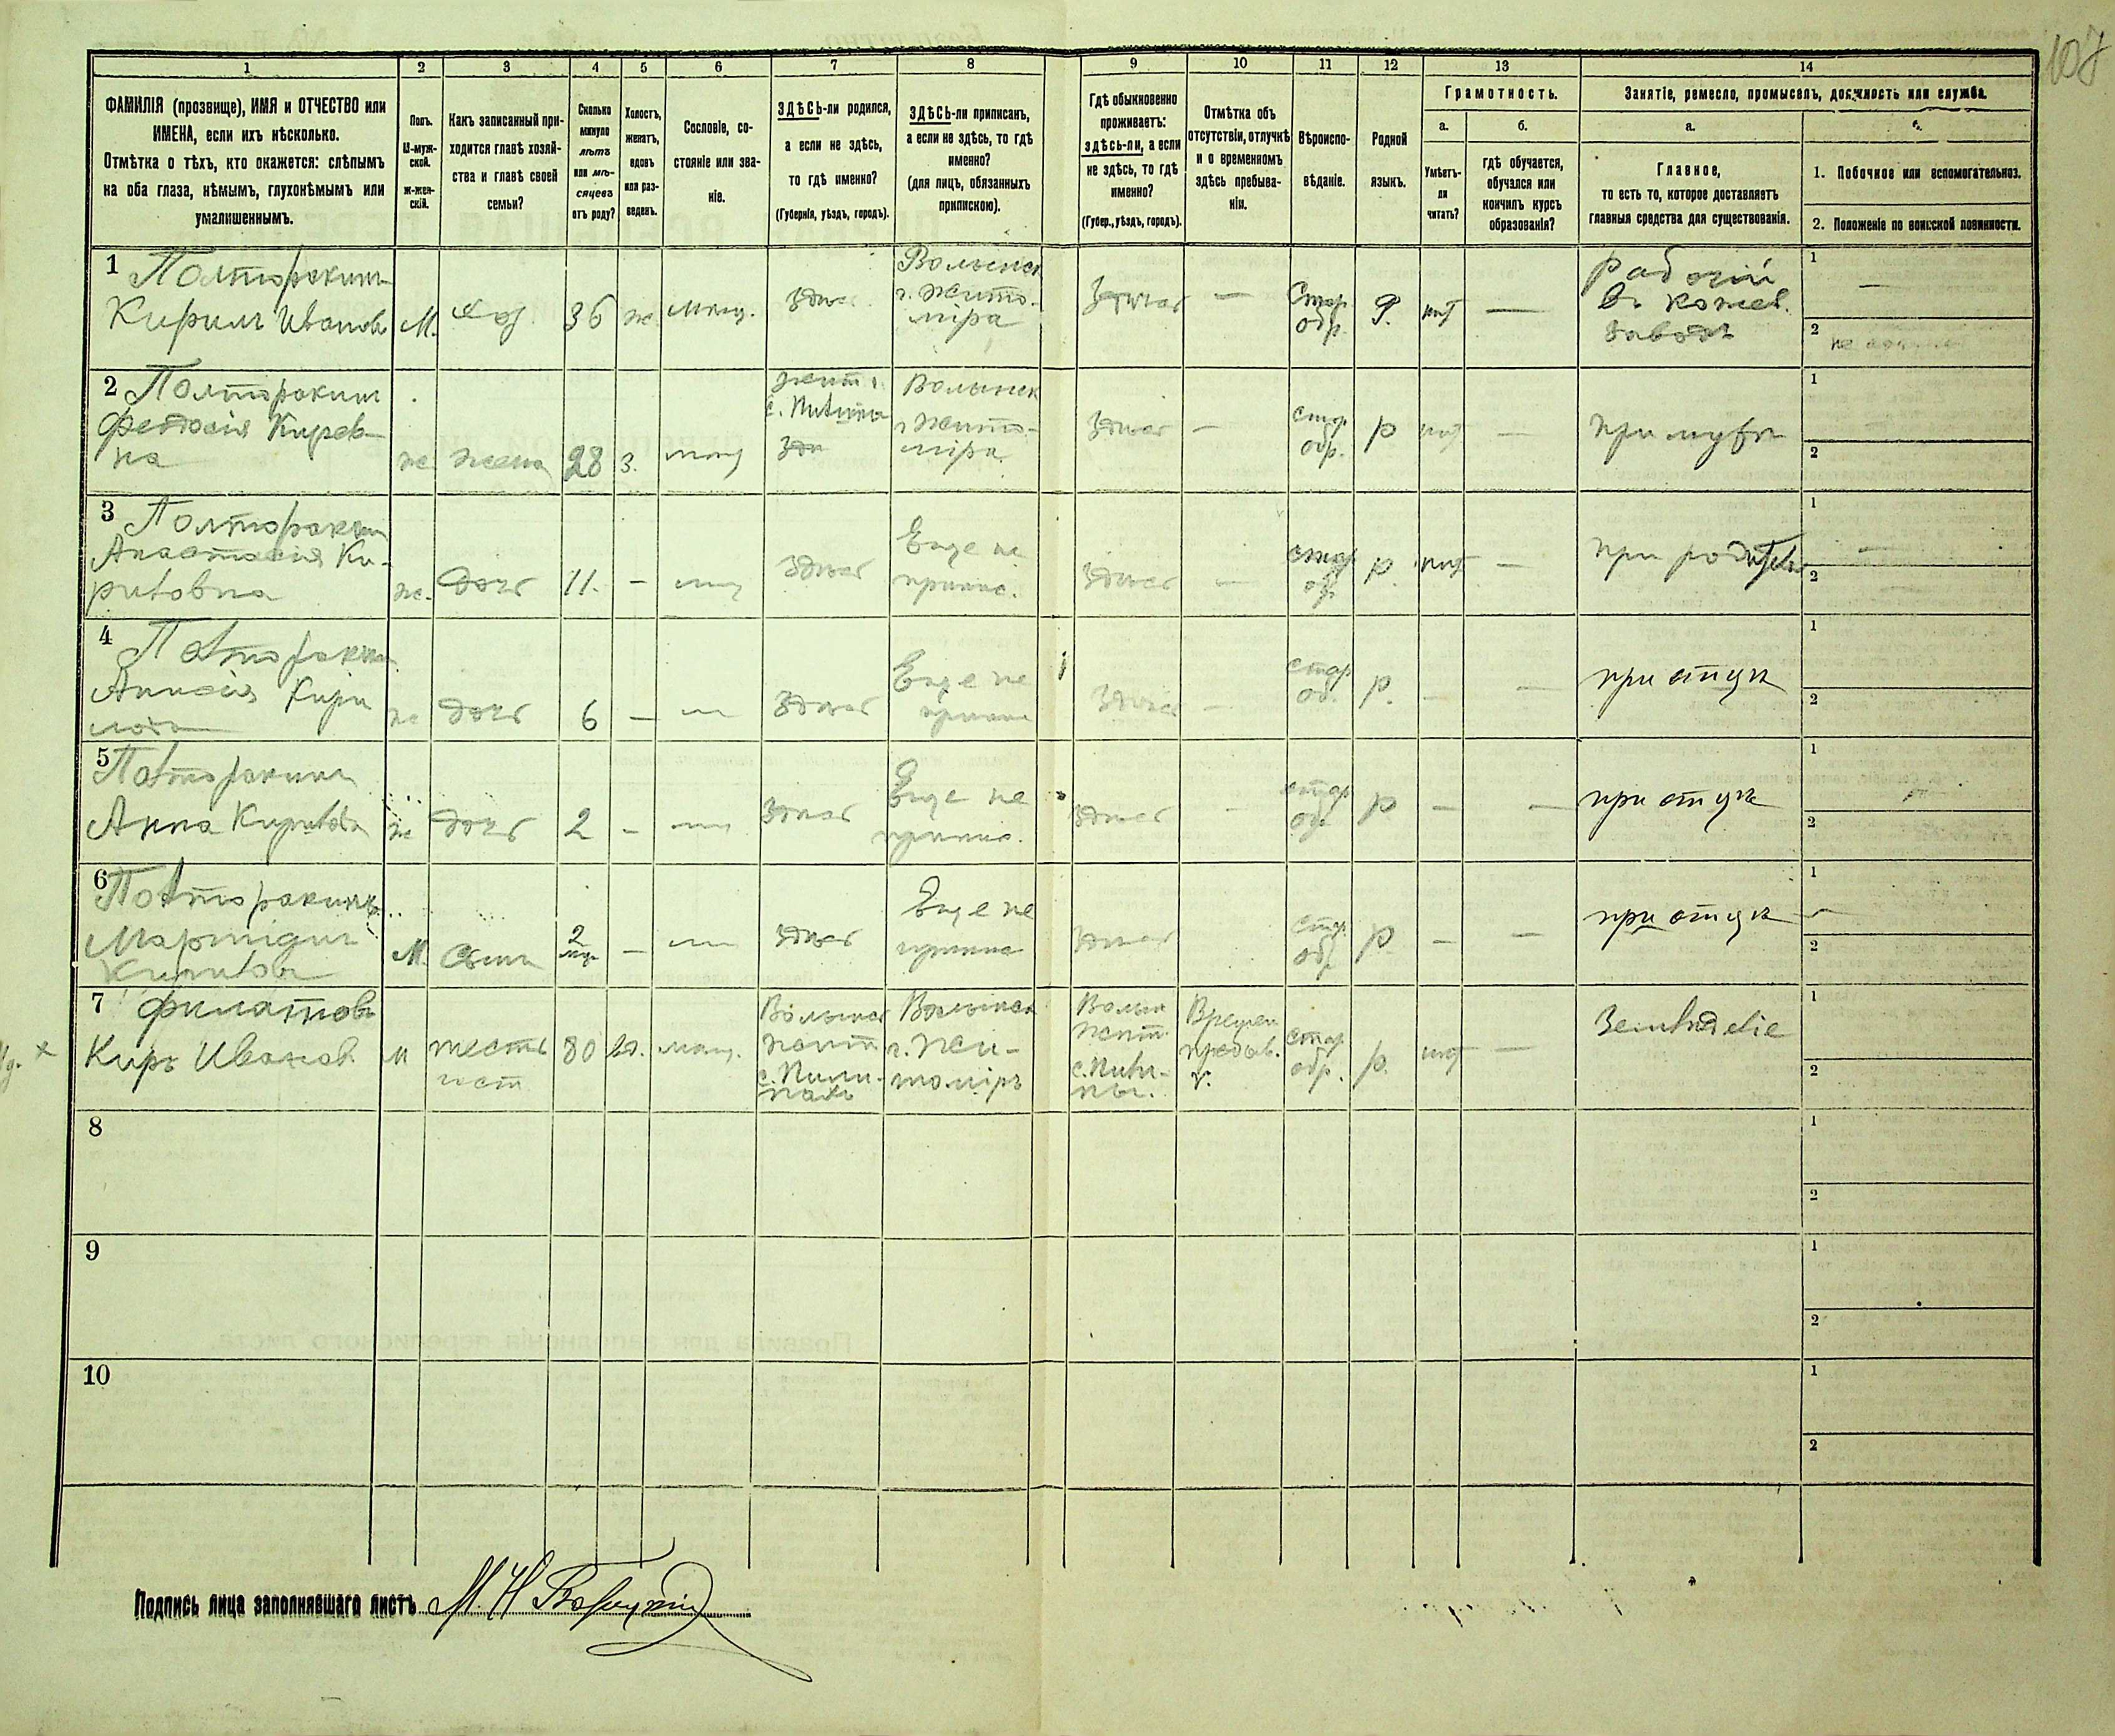 107
1 2 3 4 5 6 7 8 9 10 11 12 13 14
ФАМИЛІЯ (прозвище), ИМЯ и ОТЧЕСТВО или
ИМЕНА, если ихъ нѣсколько.
Отмѣтка о тѣхъ, кто окажется: слѣпымъ
на оба глаза, нѣмымъ, глухонѣмымъ или
умалишеннымъ.
Полъ.
М-муж-
ской.
ж-жен-
скій.
Какъ записанный при-
ходится главѣ хозяй-
ства и главѣ своей
семьи?
Сколько
минуло
лѣтъ
или мѣ-
сяцевъ
отъ роду?
Холостъ,
женатъ,
вдовъ
или раз-
веденъ.
Сословіе, со-
стояніе или зва-
ніе.
ЗДѢСЬ-ли родился,
а если не здѣсь,
то гдѣ именно?
(Губернія, уѣздъ, городъ).
ЗДѢСЬ-ли приписанъ,
а если не здѣсь, то гдѣ
именно?
(для лицъ, обязанныхъ
припискою).
Гдѣ обыкновенно
проживаетъ:
здѣсь-ли, а если
не здѣсь, то гдѣ
именно?
(Губер., уѣздъ, городъ).
Отмѣтка объ
отсутствіи, отлучкѣ
и о временномъ
здѣсь пребыва-
ніи.
Вѣроиспо-
вѣданіе.
Родной
языкъ.
Грамотность.
а.
Умѣетъ-
ли
читать?
б.
гдѣ обучается,
обучался или
кончилъ курсъ
образованія?
Занятіе, ремесло, промыселъ, должность или служба.
а.
Главное,
то есть то, которое доставляетъ
главныя средства для существованія.
1. Побочное или вспомогательное.
2. Положеніе по воинской повинности.
1 Полторакинъ
Кирилъ Ивановъ
М.
хоз.
36
ж.
мѣщ.
Здѣсь
Волынск
г. Жито-
міра
Здѣсь
—
Стар
обр.
Р.
нѣт
—
рабочій
въ кожев.
заводѣ
1
—
2
не
2 Полторакин
Федосія Кирев-
на
ж
жена
28
З.
мѣщ
Жит
с. Пилипы
Зд
Волынск
г Жито-
міра
Здѣсь
—
стар
обр.
р
нѣт
—
при мужѣ
1
2
3 Полторакин
Анастасія Ки-
риловна
ж.
дочь
11.
–
мѣщ
Здѣсь
Еще не
припис.
Здѣсь
—
стар
об
р.
нѣт
—
при родител
1
—
2
4 Полторакин
Анисія Кири
ж
дочь
6
—
м
Здѣсь
Еще не
припис
Здѣсь
—
стар
об.
р.
—
—
при отцѣ
1
2
5 Полторакина
Анна Кирилов
ж
дочь
2
–
мѣщ
Здѣсь
Еще не
припис.
Здѣсь
—
стар
об
р
—
—
при отцѣ
1
2
6 Полторакинъ
Кириловъ
М.
сынъ
2
мѣс
—
м
Здѣсь
Еще не
припис
Здѣсь
стар
обр
р
—
—
при отцѣ
1
—
2
7 Филатовъ
Киръ Иванов.
м
тесть
гост
80
вд.
мѣщ.
Волынск
Жит
с. Пили-
пахъ
Волынск
г. Жи-
томіръ
Волын
Жит.
с. Пили-
пы.
Времен
пребыв.
стар
обр.
р.
нѣт
—
Земледѣліе
1
2
8
1
2
9
1
2
10
1
2
Подпись лица заполнявшаго листъ М. Н.